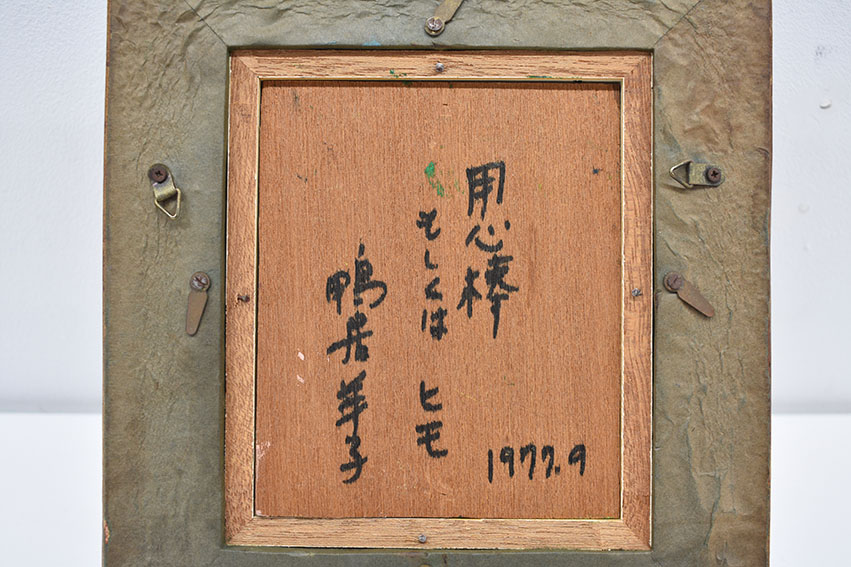 用心棒
もしくは ヒモ
鴨居羊子
1977.9